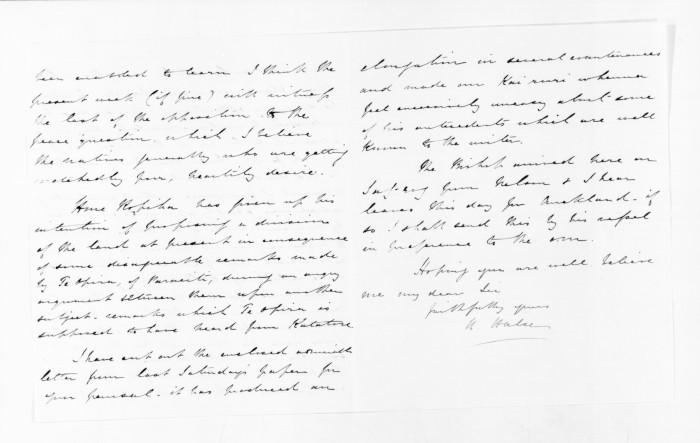 been enabled to learn I think the
present week (if fine) will witness
the last of the opposition to the
peace question which I believe
the natives generally who are getting
wretchedly poor, heartily desire.
Hone Ropiha has given up his
intention of proposing a division
of the land at present in consequence
of some disagreeable remarks made
by Te Ope'ra, of Paraiti, during an angry
argument between them upon another
subject. remarks which Te Opera is
supposed to have heard from Katatore
I have cut out the enclosed
letter from last Saturday's paper for
your perusal. it has produced an
elongation in several countenances
and made our Kai ruri whenua
feel excessively uneasy about some
of his antecedents which are well
known to the writer.
The Bishop arrived here on
from Nelson & I hear
leaves this day for Auckland. if
so I shall send this by his vessel
in preference to the
Hoping you are well believe
me my dear Sir
faithfully yours
H Halse